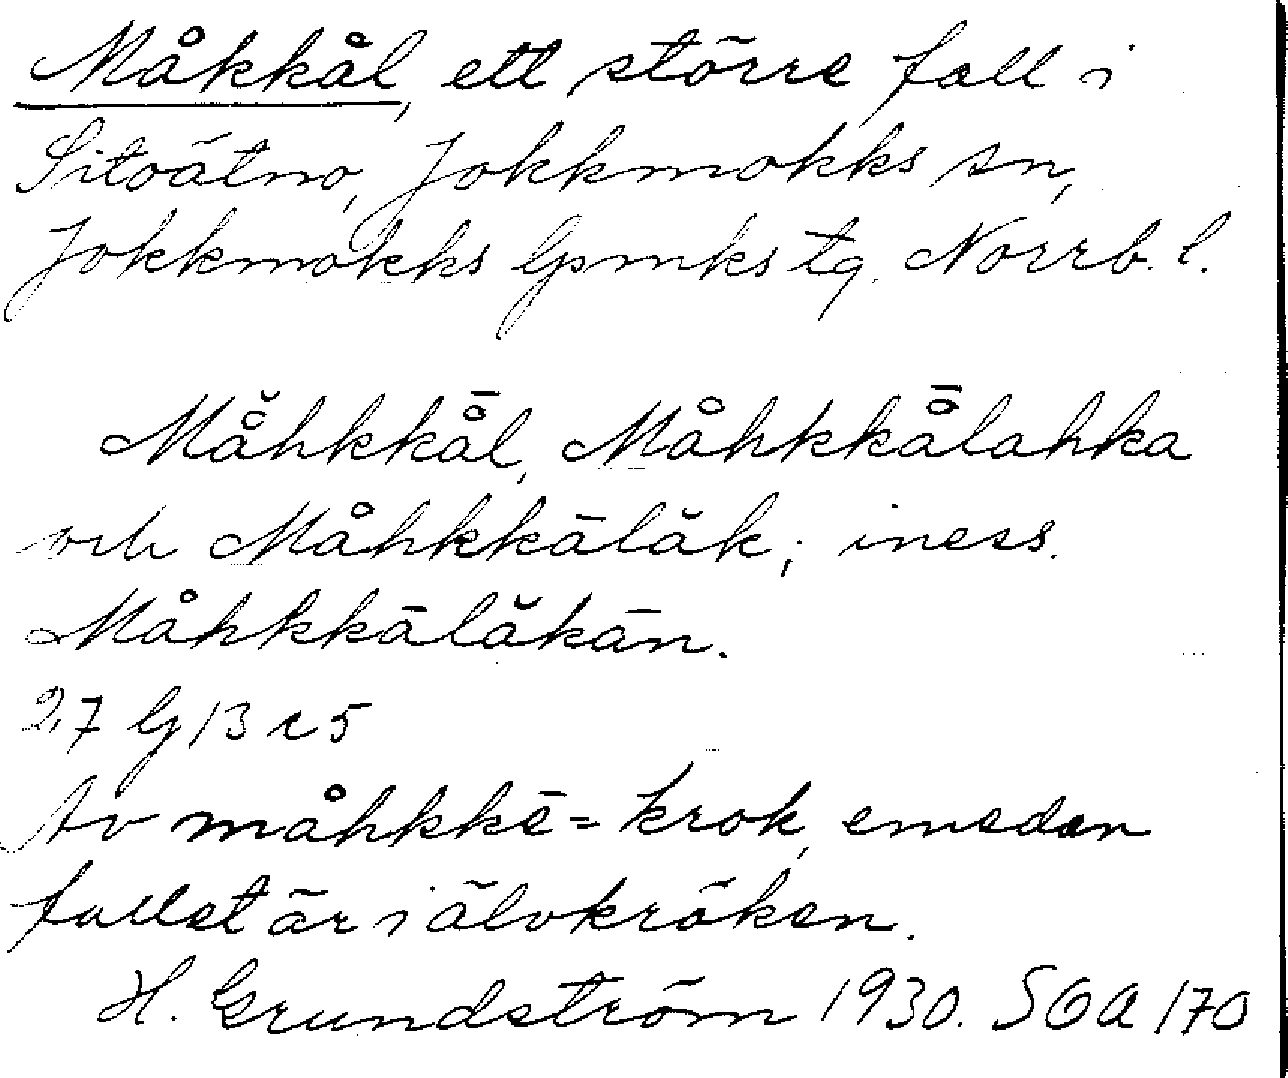 Måkkål, ett större fall i
Sitoätno, Jokkmokks sn,
Jokkmokks lpmks tg. Norrb. l.
Må̆hkkå̄l, Måhkkå̄lahka
och Måhkkālăk; iness.
Måhkkālăkān.
27 G 13 c 5
Av måhkkē = krok, emedan
fallet är i älvkröken.
H. Grundström 1930. SOA 170